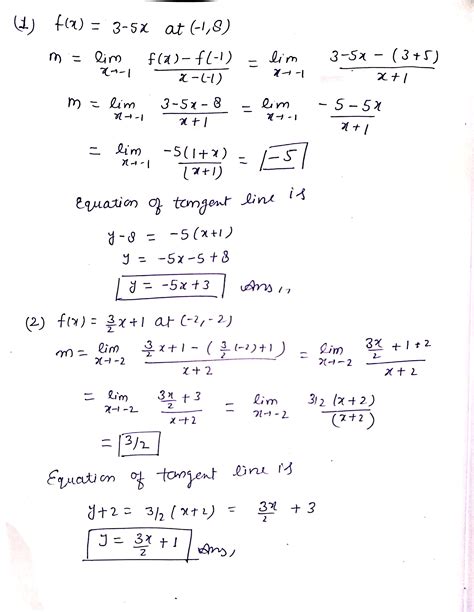 (1) f(x) = 3-5x at (-1,8)
m = lim x→-1 f(x)-f(-1) / x-(-1) = lim x→-1 3-5x-(3+5) / x+1
m = lim x→-1 3-5x-8 / x+1 = lim x→-1 -5-5x / x+1
= lim x→-1 -5(1+x) / (x+1) = -5
Equation of tangent line is
y-8 = -5(x+1)
y = -5x-5+8
y = -5x+3 Ans,,
(2) f(x) = 3/2 x+1 at (-2,-2)
m = lim x→-2 3/2 x+1-(3/2 (-2)+1) / x+2 = lim x→-2 3x/2 +1+2 / x+2
= lim x→-2 3x/2 +3 / x+2 = lim x→-2 3/2 (x+2) / (x+2)
= 3/2
Equation of tangent line is
y+2 = 3/2 (x+2) = 3x/2 + 3
y = 3x/2 + 1 Ans,